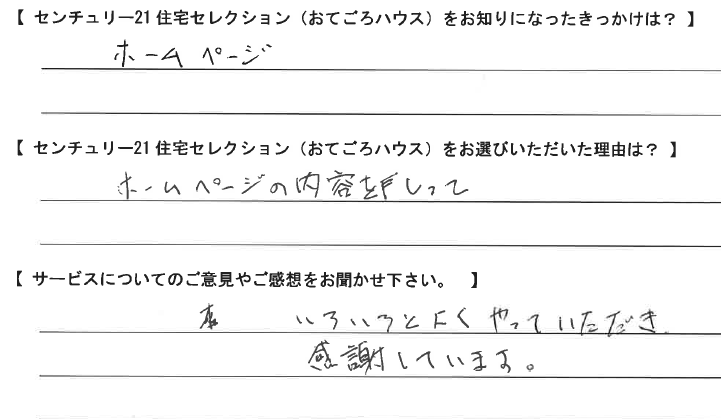 【 センチュリー21 住宅セレクション（おてごろハウス）をお知りになったきっかけは？ 】
ホームページ
【 センチュリー21 住宅セレクション（おてごろハウス）をお選びいただいた理由は？ 】
ホームページの内容を しって
【 サービスについてのご意見やご感想をお聞かせ下さい。 】
いろいろとよくやっていただき
感謝しています。